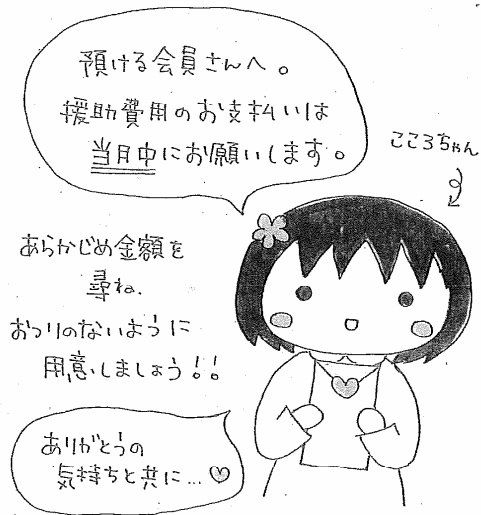 預ける会員さんへ。
援助費用のお支払いは
当月中にお願いします。
こころちゃん
あらかじめ金額を
尋ね、
おつりのないように
用意しましょう!!
ありがとうの
気持ちと共に…♡